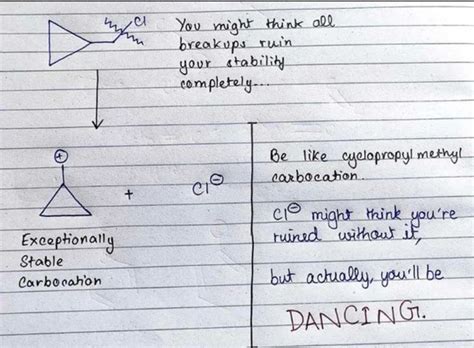 Cl
You might think all
breakups ruin
your stability
completely...
⊕
+ Cl⊖
Exceptionally
Stable
Carbocation
Be like cyclopropyl methyl
carbocation.
Cl⊖ might think you're
ruined without it,
but actually, you'll be
DANCING.